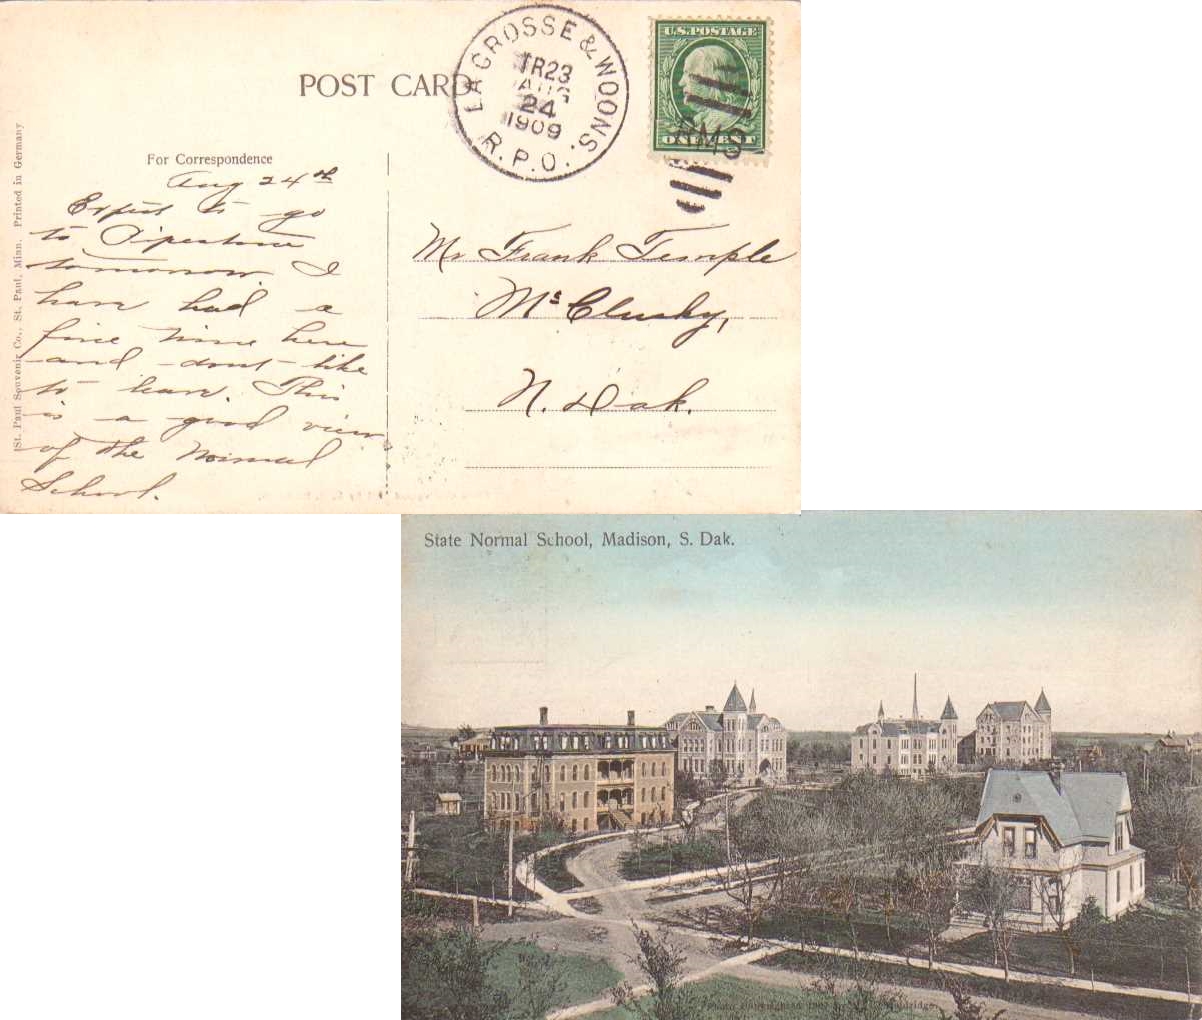 POST CARD
LA CROSSE & WOONS.
TR23
AUG
24
1909
R.P.O.
U.S. POSTAGE
ONE CENT
RMS
For Correspondence
Aug 24th
Expect to go
to Pipestone
tomorrow I
have had a
fine time here
and dont like
to leave. This
is a good view
of the Normal
School.
Mr Frank Temple
McClusky,
N. Dak.
St. Paul Souvenir Co., St. Paul, Minn. Printed in Germany
State Normal School, Madison, S. Dak.